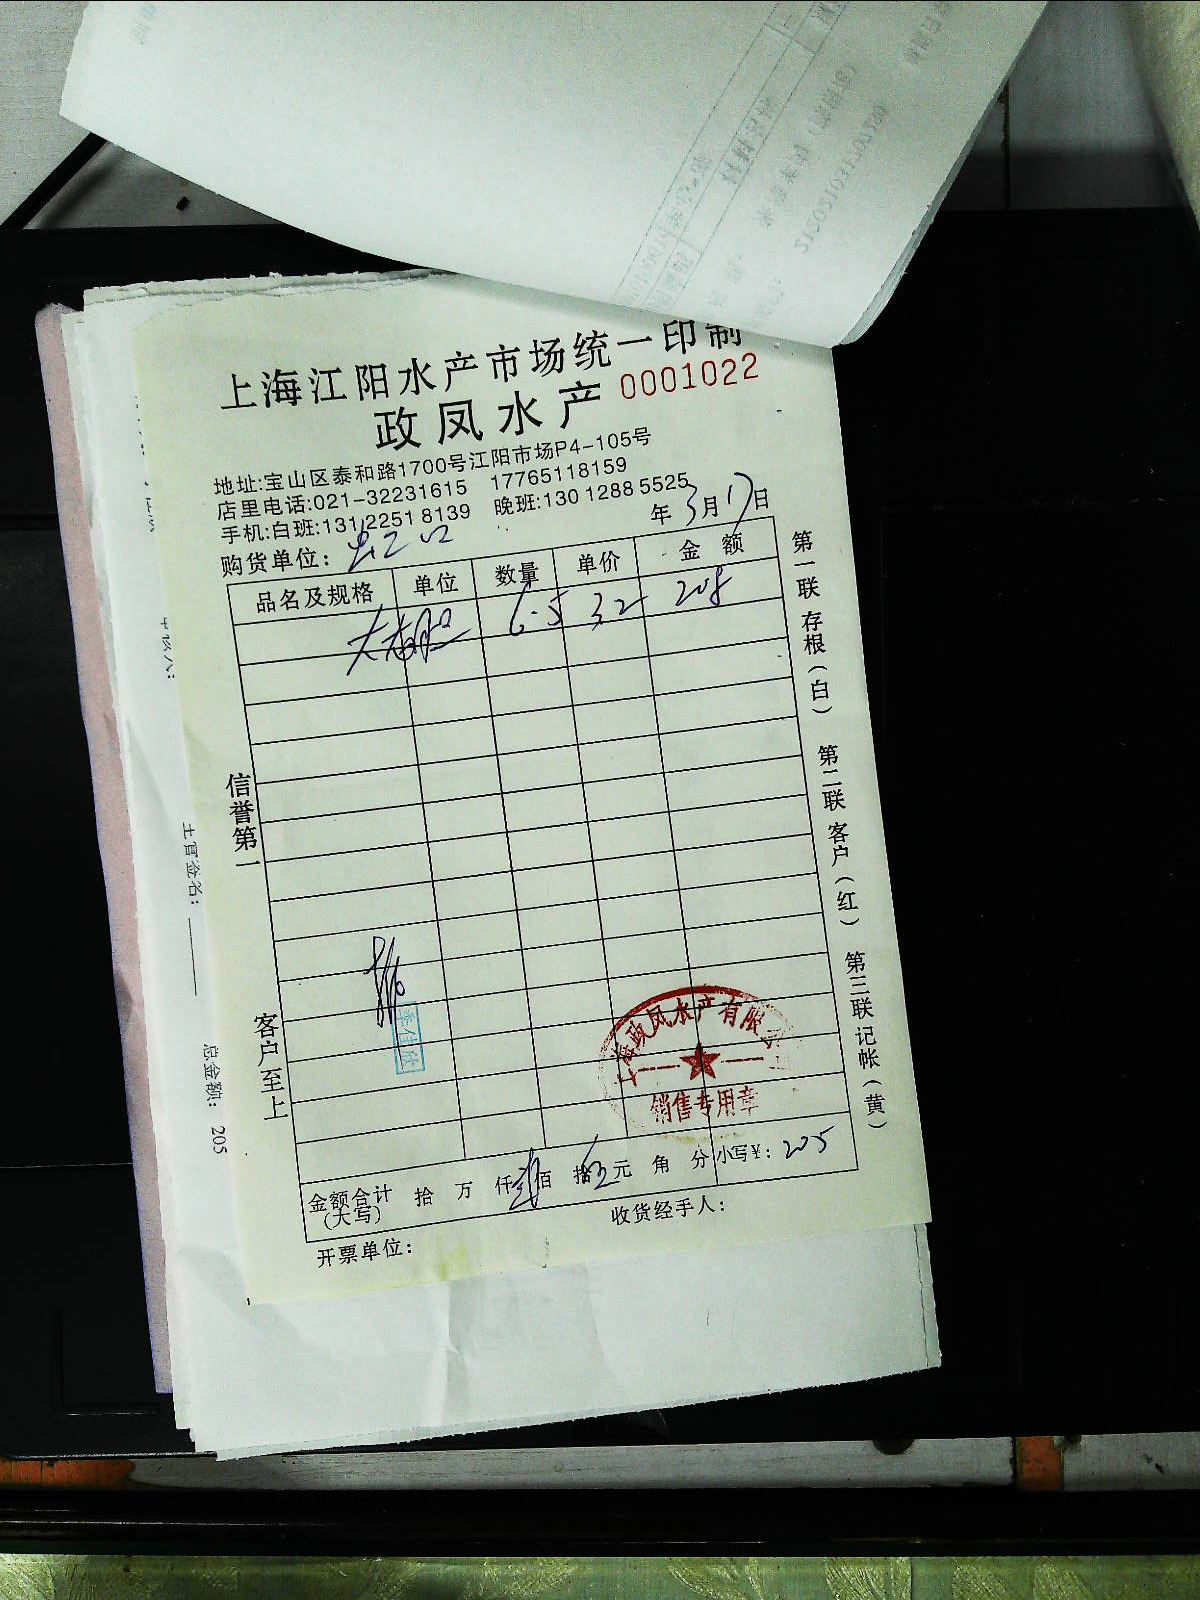 上海江阳水产市场统一印制
政凤水产 0001022
地址:宝山区泰和路1700号江阳市场P4-105号
店里电话:021-32231615 17765118159
手机:白班:131 2251 8139 晚班:130 1288 5525
年 3月17日
购货单位: 虹口
品名及规格 单位 数量 单价 金额
6.5 32 208
信誉第一 客户至上
第一联 存根(白) 第二联 客户(红) 第三联 记帐(黄)
李佳欣
上海政凤水产有限公司
销售专用章
金额合计(大写) 拾 万 仟 贰佰 拾 伍元 角 分 小写¥: 205
开票单位: 收货经手人:
主管签名:
总金额: 205